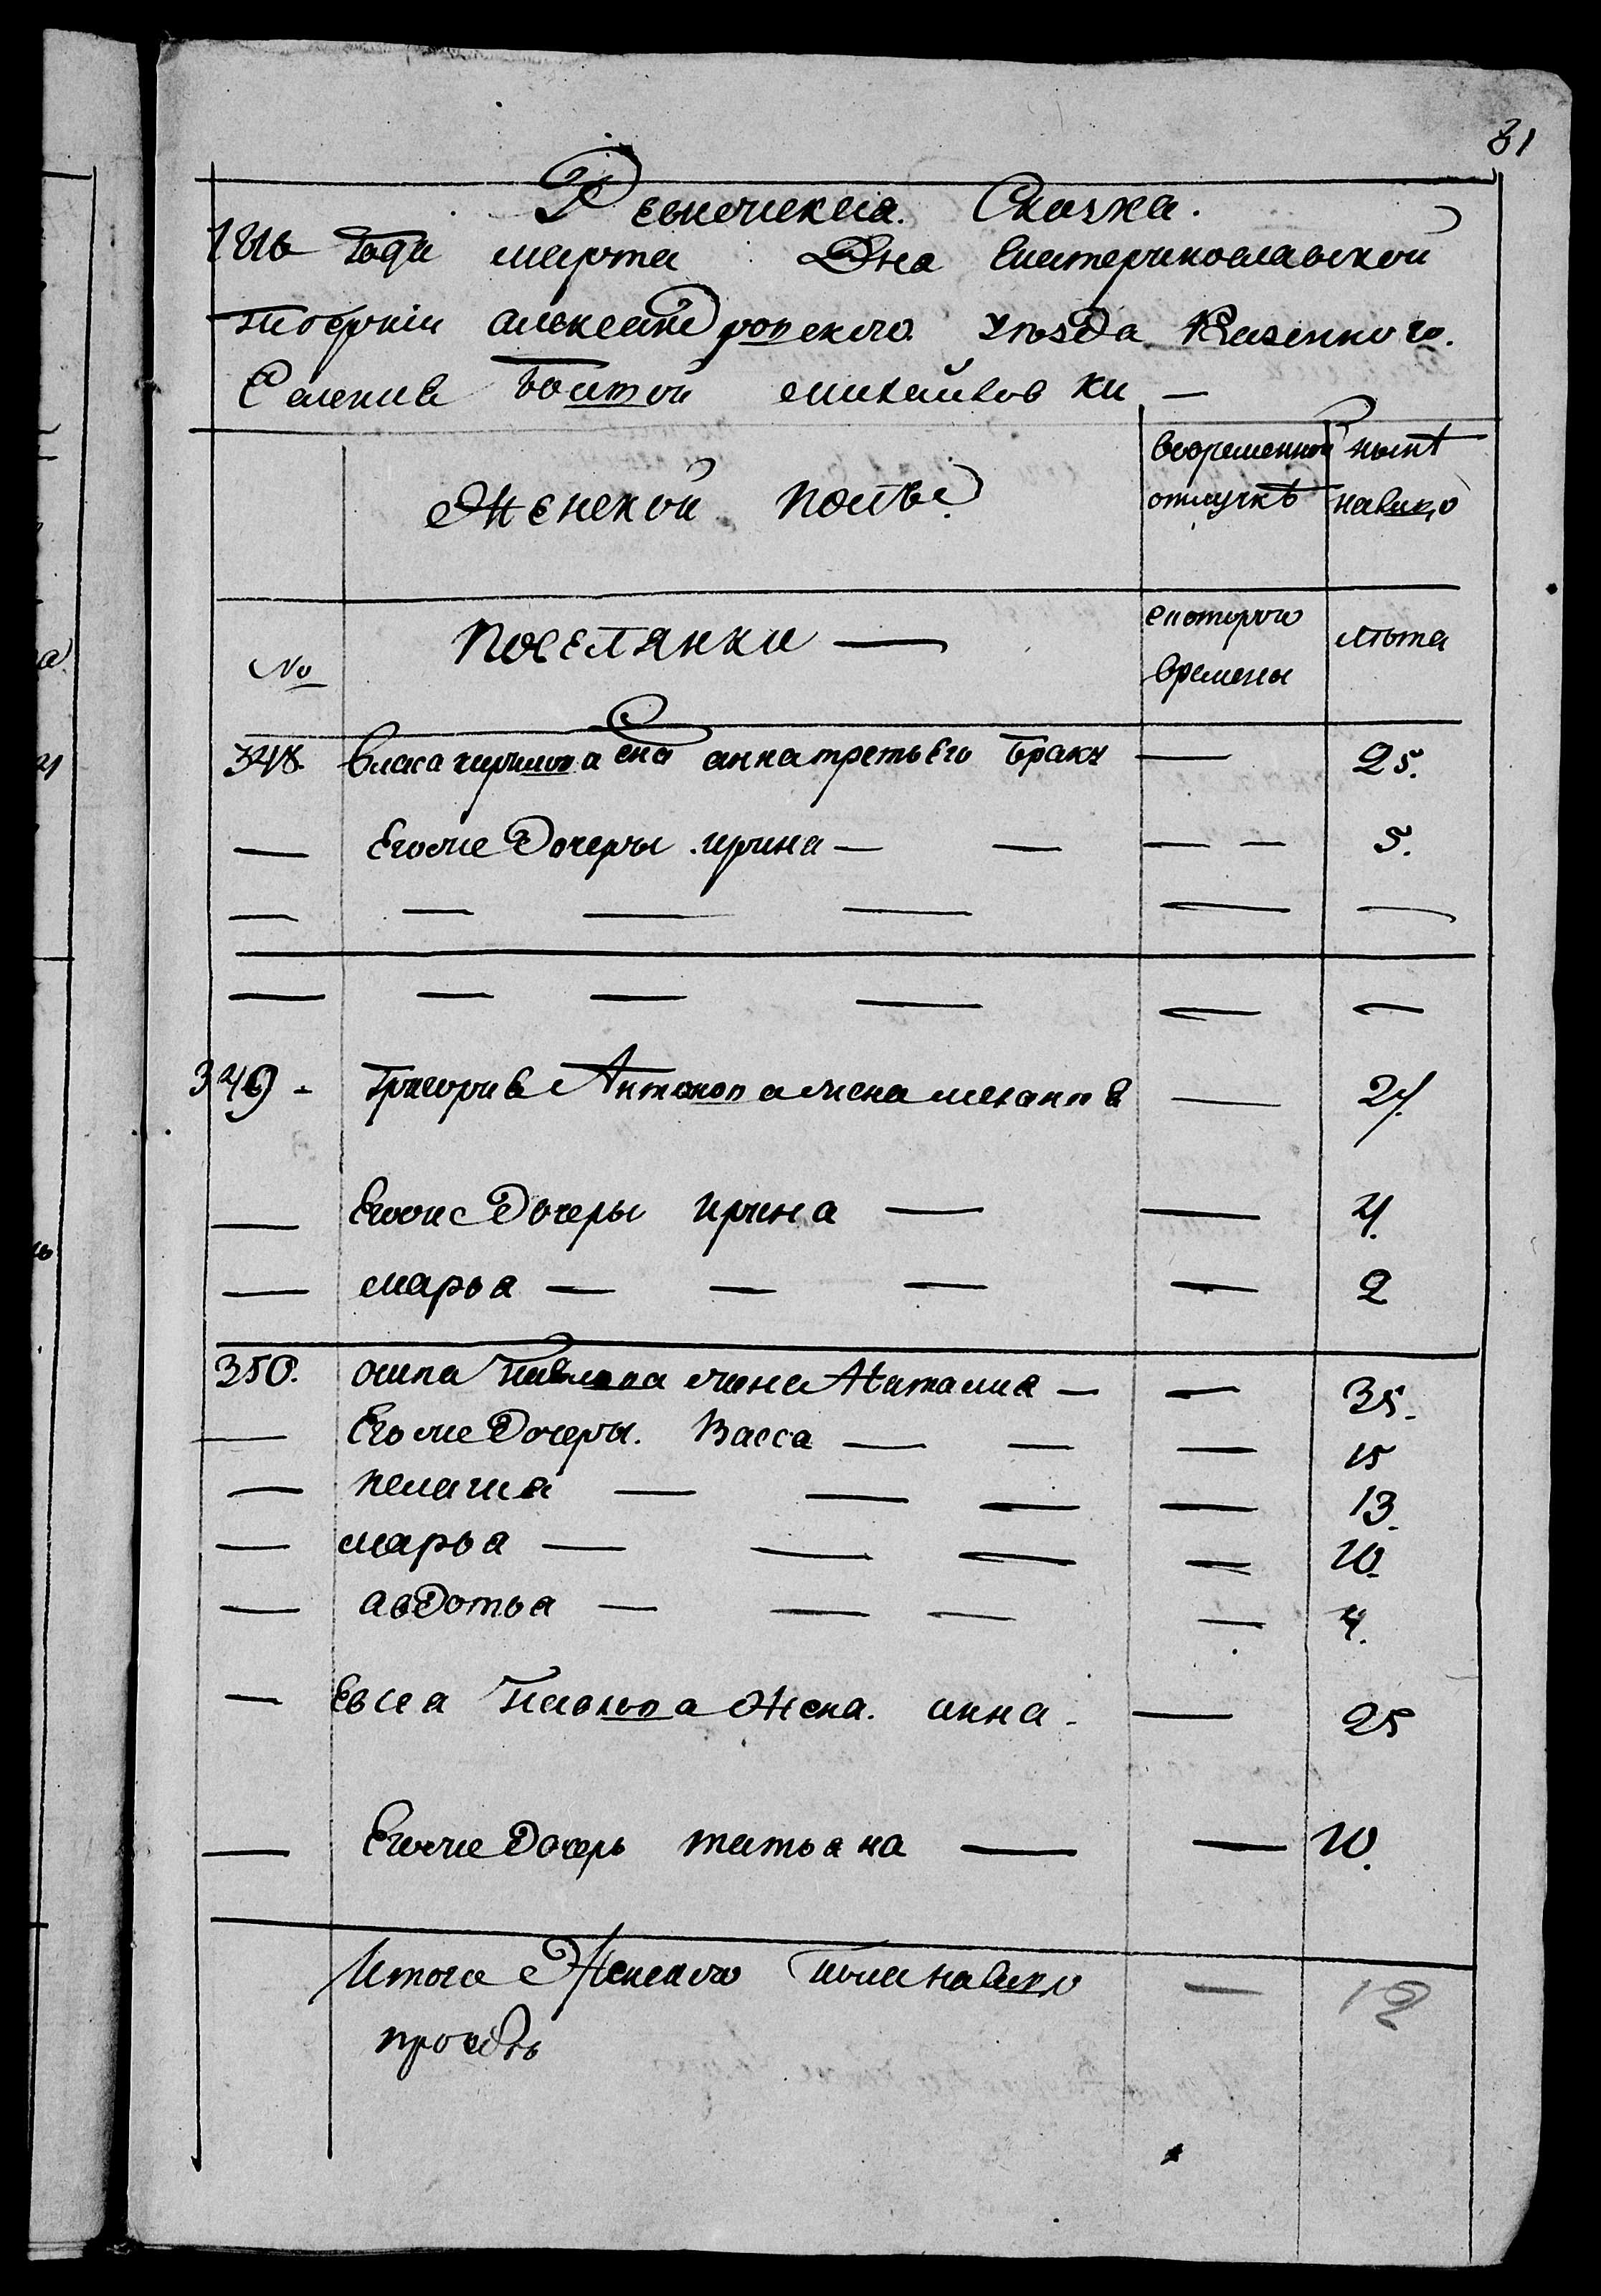 81
Ревижская Сказка.
1816 Года марта Дня Екатеринославской
Губернии александровского уезда Казенного
Селения Болшой михайловки —
Женской поль
вовременной отлучкѣ
ныне налицо
№
поселянки —
скоторого времены
лѣта
348. власа кирилова жена анна третьего браку — 25.
— Егоже Дочеры ирина — — — — 5.
349 - Григория Антонова жена меланія — 27.
— Егоже Дочеры ирина — — 4.
— марья — — — — 2
350. осипа Павлова жена Наталия — — 35.
— Егоже Дочеры. Васса — — — 15
— пелагия — — — — 13.
— марья — — — — 10.
— авдотья — — — — 4.
— Евсея Павлова Жена. анна - — 25
— Егоже Дочерь татьяна — — 10.
Итого Женского пола налицо — 12